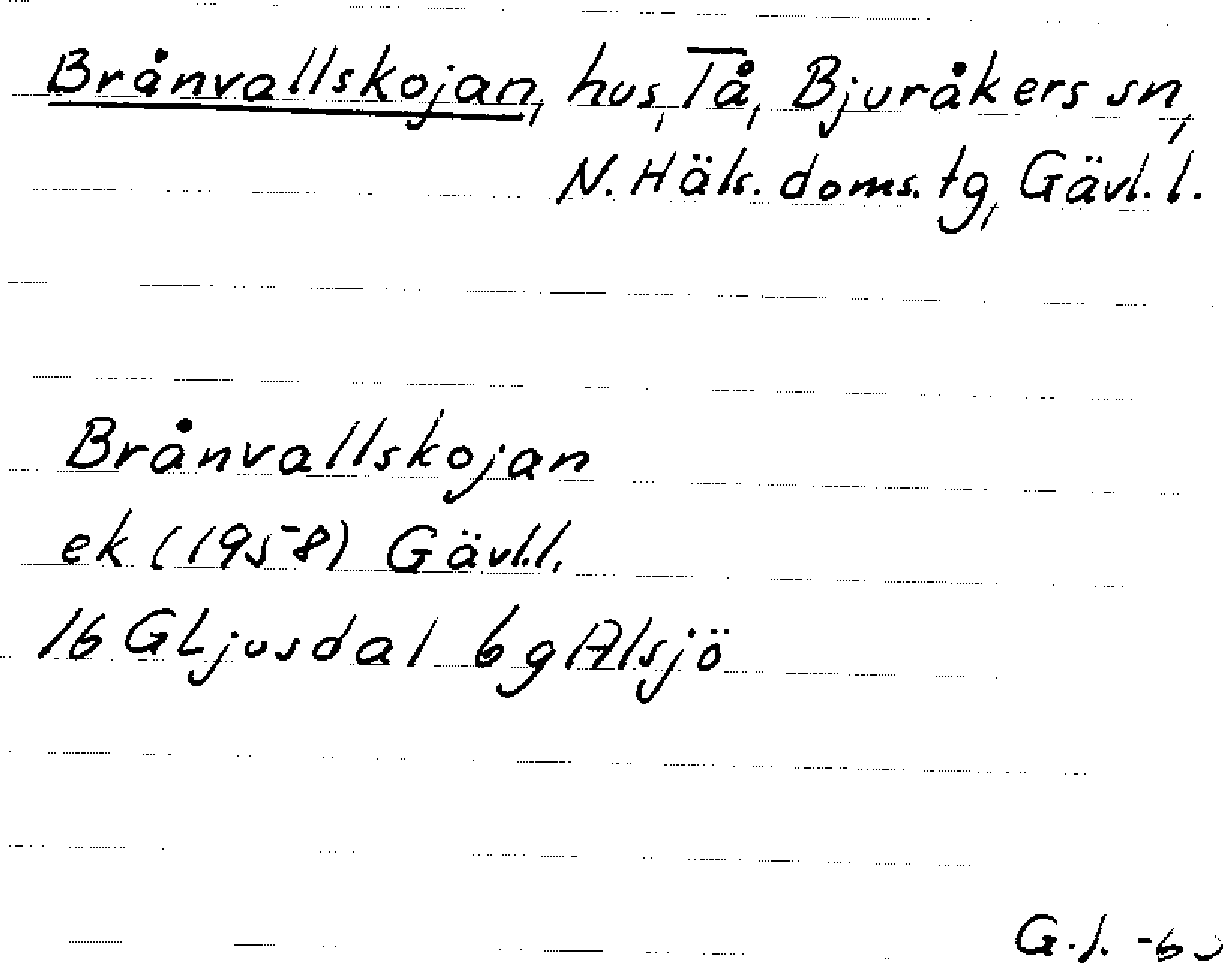 Brånvallskojan, hus, Tå, Bjuråkers sn,
N. Häls. doms. tg, Gävl. l.
Brånvallskojan
ek (1958) Gävl.l.
16 G Ljusdal 6 g Alsjö
G.l.